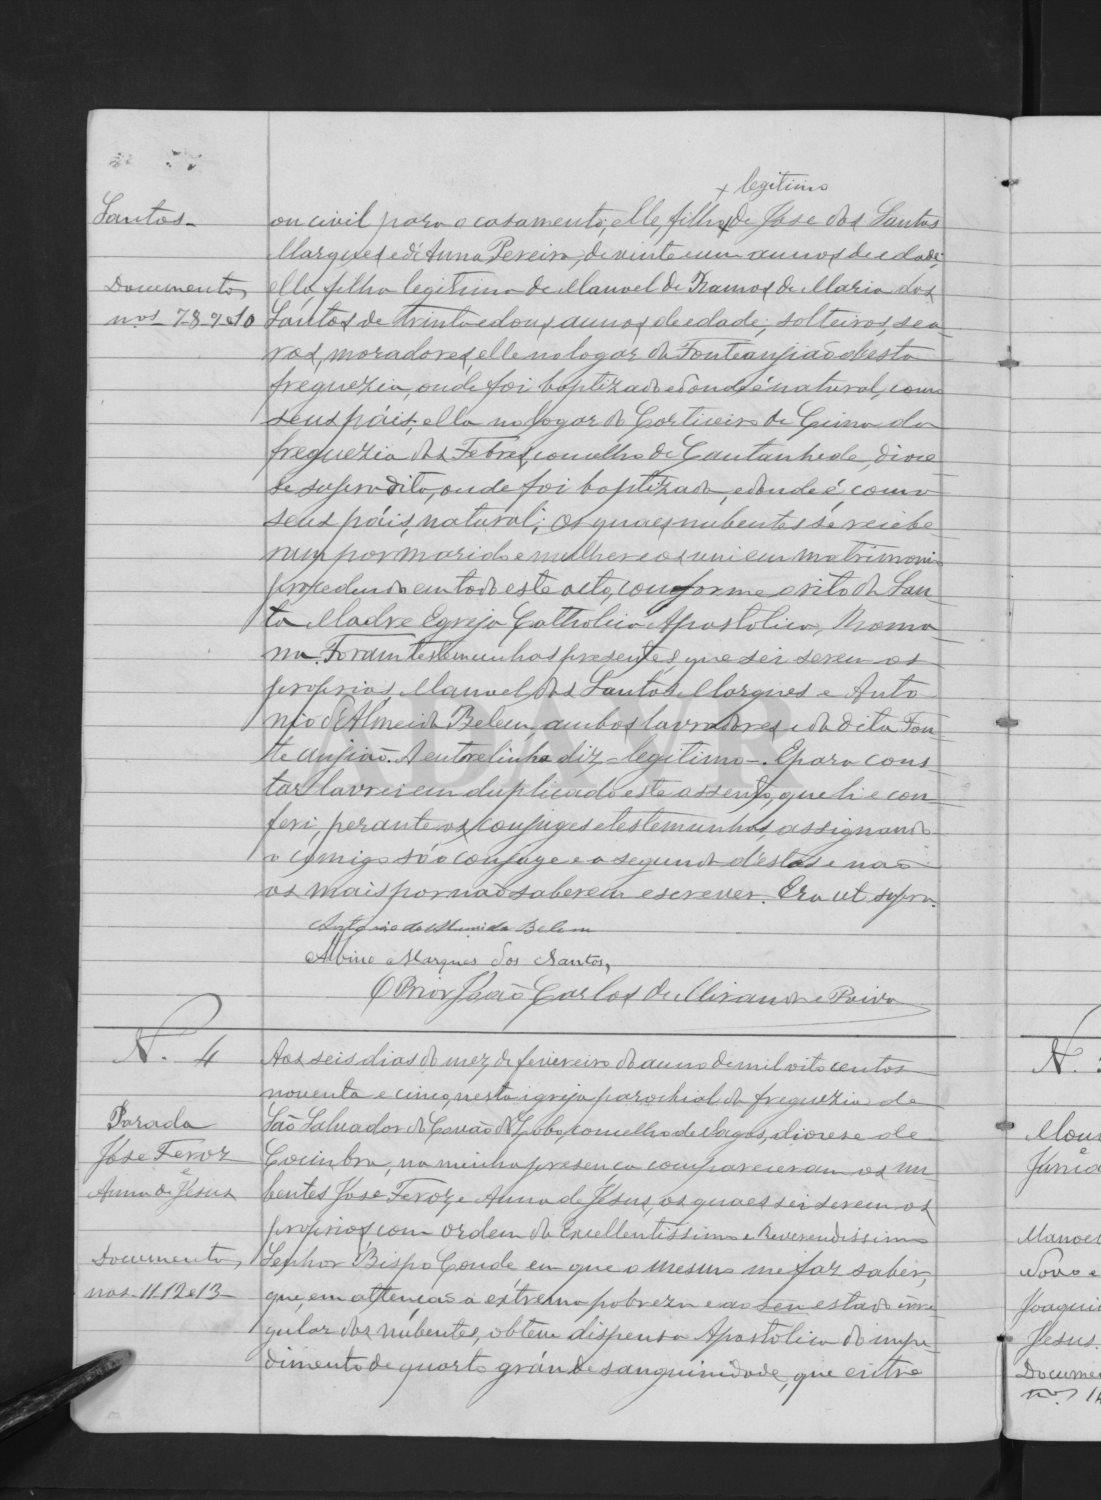 + legitimo
Santos-
ou civil para o casamento; elle, filho x de José dos Santos
Marques e de Anna Pereira, de vinte e um annos de edade;
Documentos
nos 7 8 9 e 10
ella, filha legitima de Manoel de Ramos, de Maria dos
Santos de trinta e dous annos de edade, solteiros, sea-
ros, moradores, elle no logar da Fonte angião desta
freguezia, onde foi baptizado e donde é natural, como
seus páis, ella no logar do Corticeiro de Cima da
freguezia das Febres, concelho de Cantanhede, dioce-
se supradita, onde foi baptizada, e donde é, como
seus páis, natural; os quaes nubentes se recebe-
ram por marido e mulher e os uni em matrimonio
procedendo em todo este acto, conforme o rito da San-
ta Madre Egreja Catholica Apostolica, Roma-
na. Foram testemunhas presentes, que sei serem os
proprios, Manoel dos Santos Marques e Anto-
nio d'Almeida Belem, ambos lavradores e da dicta Fon-
te angião. A entrelinha diz = legitimo -. E para cons-
tar lavrei em duplicado este assento, que li e con-
feri, perante os conjuges e testemunhas, assignando
o comigo só o conjuge e a segunda d'estas e não
os mais por não saberem escrever. Era ut supra.
Antonio de Almeida Belem
Albino Marques dos Santos,
O Prior João Carlos de Miranda e Paiva
N. 4
Parada
José Feroz
e
Anna de Jesus
Documentos,
nos 11 12 e 13-
Aos seis dias do mez de fevereiro do anno de mil oito centos
noventa e cinco, nesta igreja parochial da freguezia de
São Salvador do Covão do Lobo, concelho de Vagos, diocese de
Coimbra, na minha presença compareceram os nu-
bentes José Feroz e Anna de Jesus, os quaes sei serem os
proprios, com ordem do Excellentissimo e Reverendissimo
Senhor Bispo Conde em que o mesmo me faz saber,
que, em attenção á extrema pobreza e ao seu estado irre-
gular dos nubentes, obtem dispensa Apostolica do impe-
dimento de quarto gráu de sanguinidade, que entre
N.
Manoel
Novo e
Joaqui
Jesus.
Docume
nos 14